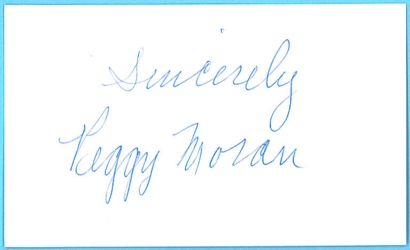 Sincerely
Peggy Moran